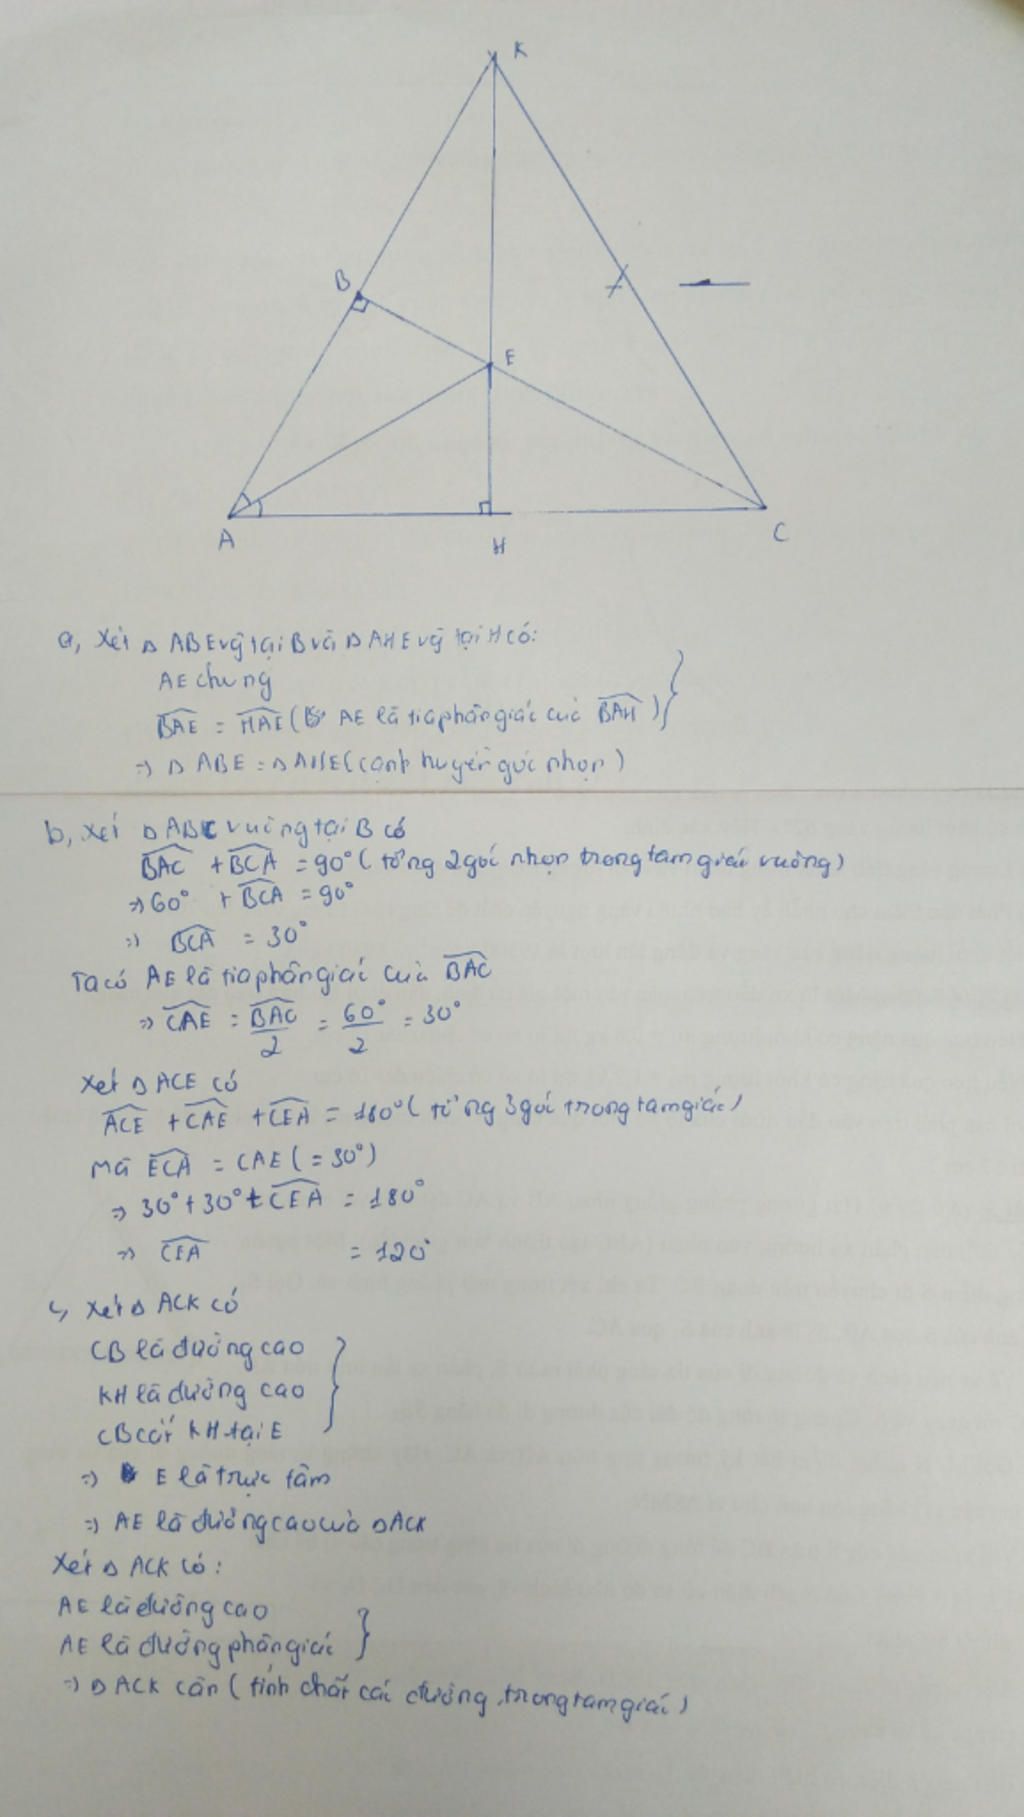 K
B
E
A
H
C
a, Xét Δ ABE vg̃ tại B và Δ AHE vg̃ tại H có:
AE chung
BAE = HAE ( AE là tia phân giác của BAH )
=> Δ ABE = Δ AHE ( cạnh huyền góc nhọn )
b, Xét Δ ABC vuông tại B có
BAC + BCA = 90° ( tổng 2 góc nhọn trong tam giác vuông )
=> 60° + BCA = 90°
=> BCA = 30°
Ta có AE là tia phân giác của BAC
=> CAE = BAC/2 = 60°/2 = 30°
Xét Δ ACE có
ACE + CAE + CEA = 180° ( tổng 3 góc trong tam giác )
Mà ECA = CAE ( = 30° )
=> 30° + 30° + CEA = 180°
=> CEA = 120°
c, Xét Δ ACK có
CB là đường cao
KH là đường cao
CB cắt KH tại E
=> E là trực tâm
=> AE là đường cao của Δ ACK
Xét Δ ACK có:
AE là đường cao
AE là đường phân giác
=> Δ ACK cân ( tính chất các đường trong tam giác )